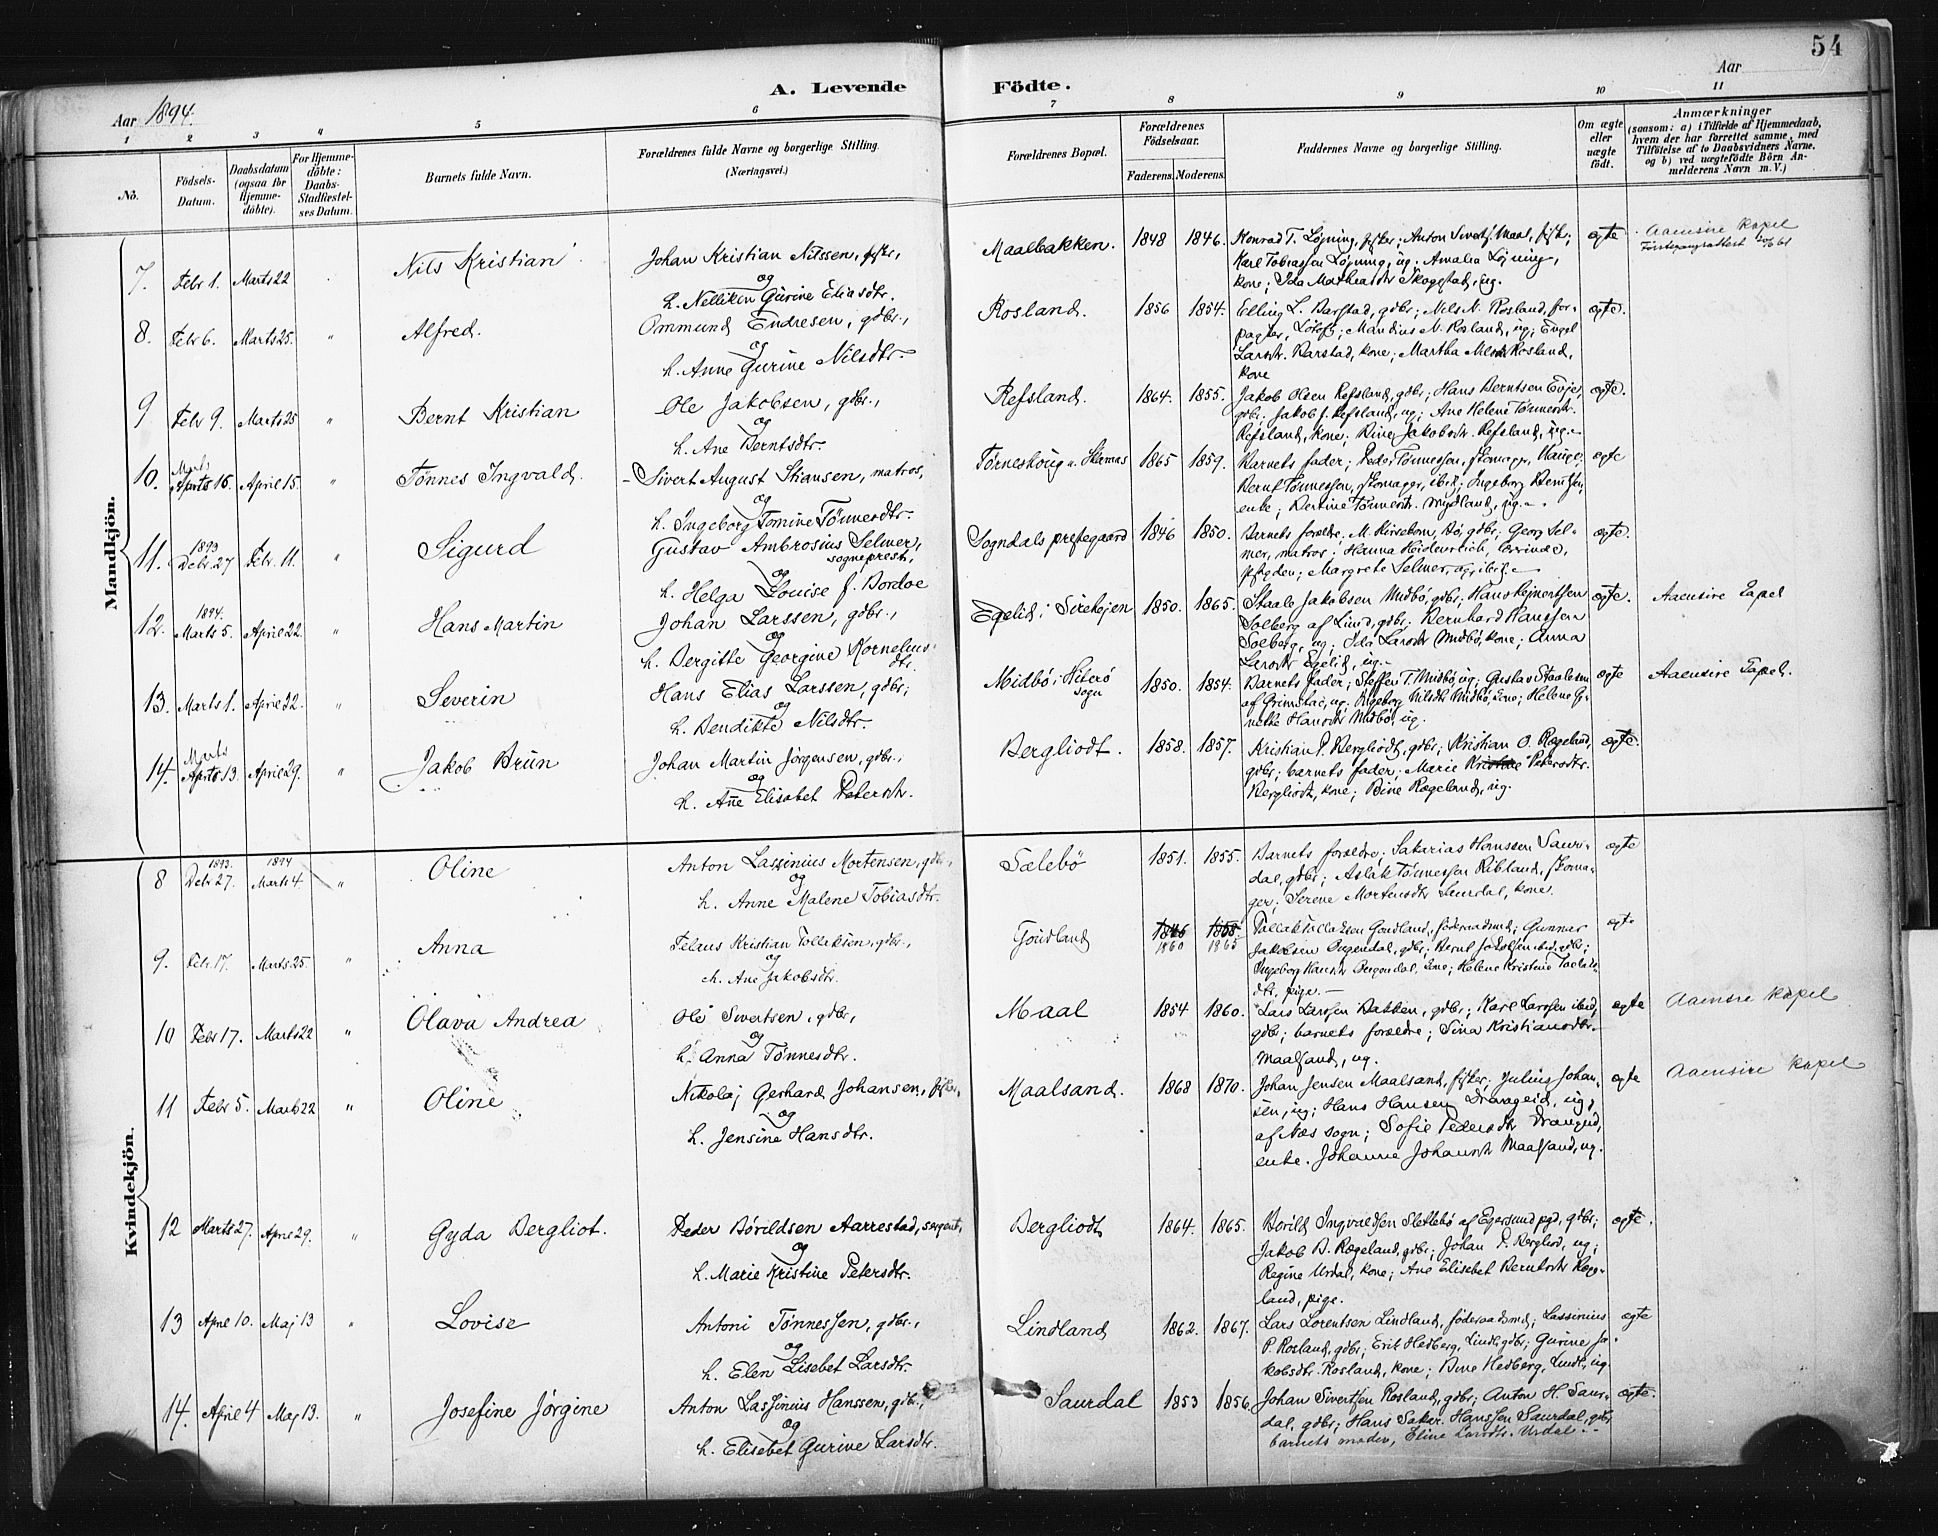 54
A. Levende Födte.
Aar 1894.
Aar
1 2 3 4 5 6 7 8 9 10 11
No.
Födsels-Datum.
Daabsdatum (ogsaa for Hjemme-döbte).
For Hjemme-döbte: Daabs-Stadfæstel-ses Datum.
Barnets fulde Navn.
Forældrenes fulde Navne og borgerlige Stilling. (Næringsvei.)
Forældrenes Bopæl.
Forældrenes Födselsaar.
Faderens. Moderens.
Faddernes Navne og borgerlige Stilling.
Om ægte eller uægte födt.
Anmærkninger
(saasom: a) i Tilfælde af Hjemmedaab, hvem der har forrettet samme, med Tilföielse af to Daabsvidners Navne, og b) ved uægtefödte Börn An-melderens Navn m. V.)
Mandkjön.
7. Febr 1. Marts 22 Nils Kristian Johan Kristian Nilssen, fisker, og h. Nellikin Gurine Eliasdtr. Maalbakken. 1848 1846. Konrad T. Løjning, fisker; Anton Sivertf. Maal, fisk.; Karl Tobiassen Løjning, ug. Amalia Løjning, kone; Ida Matheasdtr Skogstad, ug. ægte Aaensire Kapel
8. Febr 6. Marts 25. " Alfred. Ommund Endresen, gdbr., og h. Anne Gurine Nilsdtr. Rosland. 1856 1854. Elling L. Barstad, gdbr; Nils N. Rosland, for-pagter, ; Mandius N. Rosland, ug; Engel Larsdtr. Barstad, kone; Martha Nilsdtr Rosland, kone ægte.
9 Febr 9. Marts 25 " Bernt Kristian Ole Jakobsen, gdbr., og h. Ane Berntsdtr. Refsland. 1864. 1855. Jakob Olsen Refsland, gdbr; Hans Berntsen Evje, gdbr. Jakob J. Refsland, ug; Ane Helene Tønnesdtr. Refsland, kone; Bine Jakobsdtr. Refsland, ug. ægte.
10. Marts 16. April 15. " Tønnes Ingvald. Sivert August Stiansen, matros, og h. Ingeborg Tomine Tønnesdtr. Tørneshoug 1865 1859. Barnets fader; Peder Tønnessen, skomager, Hauge; Bernt Tønnessen, skomager, ibid; Ingeborg Berntsen, enke; Bertine Tønnesdtr. Mydland, ug. ægte
11. 1893 Debr. 27 Febr. 11. " Sigurd Gustav Ambrosius Selmer, sogneprest, og h. Helga Louise f. Bordoe Sogndals prestegaard 1846 1850. Barnets foreldre. M. Kirsebom, Bø, gdbr; Georg Sel-mer, matros; Hanna Heidenreich, lærerinde, ; Margrete Selmer, ug, ibid. ægte.
12. 1894. Marts 5. April 22. " Hans Martin Johan Larssen, gdbr., og h. Bergitte Georgine Kornelius-dtr. Egelid i Sirekjen 1850. 1865. Staale Jakobsen Midbø, gdbr; Hans Rejnertsen Solberg af Lund, gdbr; Bernhard Hanssen Solberg, ug; Ida Larsdtr Midbø, kone; Anna Larsdtr Egelid, ug. ægte. Aaensire Capel
13. Marts 1. April 22. " Severin Hans Elias Larssen, gdbr; og h. Bendikte Nilsdtr. Midbø i Hiterø sogn 1850. 1854. Barnets fader; Steffen T. Midbø, ug; Gustav Staalesen af Grimstad, ug; Ingeborg Nilsdtr Midbø, kone; Helene G-nette Hansdtr Midbø, ug. ægte Aaensire Capel.
14. Marts 13. April 29. " Jakob Brun Johan Martin Jørgensen, gdbr., og h. Ane Elisabet Petersdtr. Bergliodt. 1858. 1857. Kristian P. Bergliodt, gdbr; Kristian O. Rægeland, gdbr; barnets fader; Marie Petersdtr. Bergliodt, kone; Bine Rægeland, ug. ægte.
Kvindekjön.
8 1893. Debr 27. 1894 Marts 4. " Oline Anton Lassinius Mortensen, gdbr, og h. Anne Malene Tobiasdtr. Sælebø 1851. 1855. Barnets foreldre; Sakarias Hanssen Saur-dal, gdbr; Aslak Tønnessen Ribland, skoma-ger; Serene Mortensdtr Saurdal, kone. ægte
9. Febr. 17. Marts 25. " Anna Telaus Kristian Tolleksen, gdbr., og h. Ane Jakobsdtr. Goudland 1846 1855. 1860 1865 Tallak Tallaksen Goudland, føderaadsmd; Gunnar Jakobsen Ougendal, gdbr; gdbr; Ingeborg Hansdtr Ougendal, kone; Helene Kristine Tallaks-dtr, pige. ægte
10 Febr 17. Marts 22 " Olava Andrea Ole Sivertsen, gdbr, og h. Anna Tønnesdtr. Maal 1854 1860. Lars Larssen Bakken, gdbr; Karl Larssen ibid, gdbr; barnets foreldre; Sina Kristiansdtr. Maalsand, ug. ægte Aaensire Kapel
11 Febr 5. Marts 22 " Oline Nikolaj Gerhard Johansen, fisker, og h. Jensine Hansdtr. Maalsand. 1868 1870. Johan Jensen Maalsand, fisker; Julius Johan-sen, ug; Hans Hansen Drangeid, ug, af Næs sogn; Sofie Pedersdtr Drangeid, enke. Johanne Johansdtr Maalsand, ug. ægte Aaensire Kapel
12 Marts 27. April 29. " Gyda Bergliot. Peder Børildsen Aarrestad, sergent, og h. Marie Kristine Petersdtr. Bergliodt 1864. 1865. Børild Ingvaldsen Slettebø af Egersund pgd, gdbr; Jakob B. Rægeland, gdbr; Johan P. Bergliod, ug; Regine Urdal, kone; Ane Elisebet Berntsdtr Ræge-land, pige. ægte.
13 April 10. Maj 13 " Lovise Antoni Tønnessen, gdbr., og h. Elen Lisebet Larsdtr. Lindland 1862. 1867. Lars Lorentsen Lindland, føderaadsmd; Lassinius P. Rosland, gdbr; Erik Hedberg, Linde, gdbr; Gurine Ja-kobsdtr. Rosland, kone; Bine Hedberg, Linde, ug ægte
14. April 4 Maj 13. " Josefine Jørgine Anton Lassinius Hanssen, gdbr., og h. Elisebet Gurine Larsdtr. Saurdal 1853 1856. Johan Sivertsen Rosland, gdbr; Anton H. Saur-dal, gdbr; Hans Sakar. Hanssen Saurdal, gdbr, barnets moder, Eline Larsdtr. Urdal. ægte.